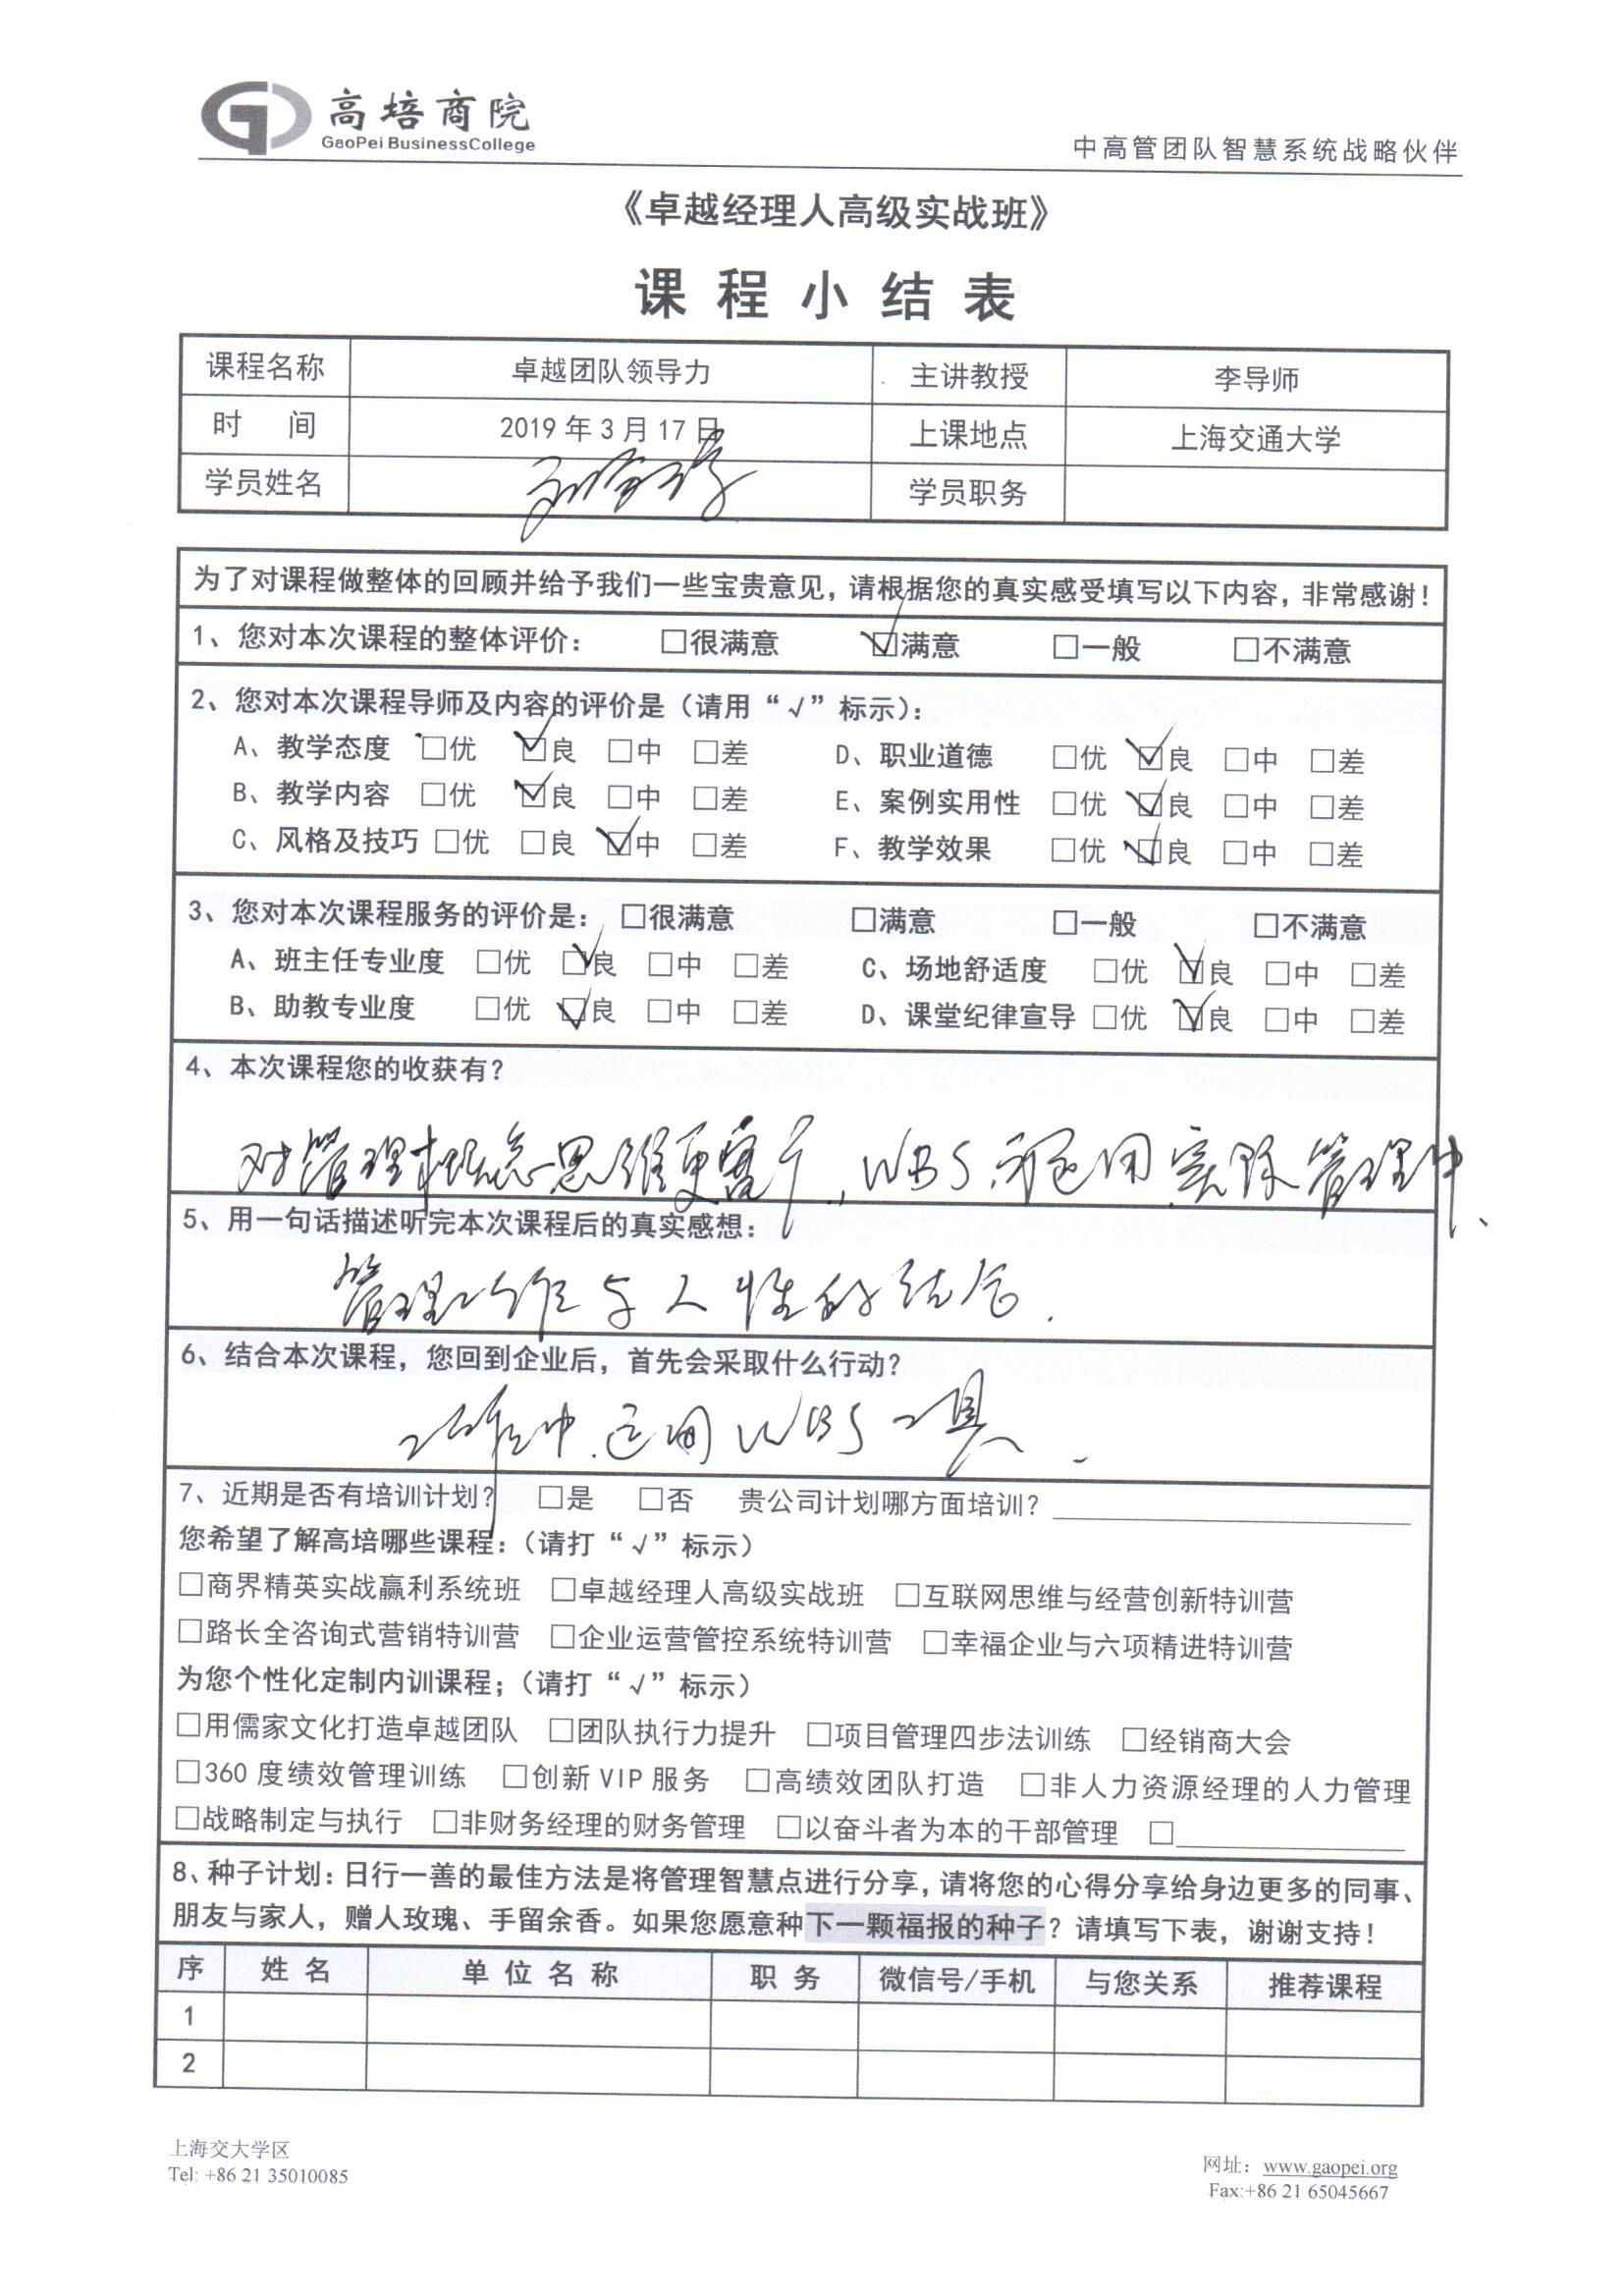 高培商院
GaoPei BusinessCollege
中高管团队智慧系统战略伙伴
《卓越经理人高级实战班》
课程小结表
课程名称 卓越团队领导力 主讲教授 李导师
时 间 2019年3月17日 上课地点 上海交通大学
学员姓名 学员职务
为了对课程做整体的回顾并给予我们一些宝贵意见，请根据您的真实感受填写以下内容，非常感谢！
1、您对本次课程的整体评价： □很满意 ☑满意 □一般 □不满意
2、您对本次课程导师及内容的评价是（请用“√”标示）：
A、教学态度 □优 ☑良 □中 □差 D、职业道德 □优 ☑良 □中 □差
B、教学内容 □优 ☑良 □中 □差 E、案例实用性 □优 ☑良 □中 □差
C、风格及技巧 □优 □良 ☑中 □差 F、教学效果 □优 ☑良 □中 □差
3、您对本次课程服务的评价是： □很满意 □满意 □一般 □不满意
A、班主任专业度 □优 ☑良 □中 □差 C、场地舒适度 □优 ☑良 □中 □差
B、助教专业度 □优 ☑良 □中 □差 D、课堂纪律宣导 □优 ☑良 □中 □差
4、本次课程您的收获有？
对管理概念思维更宽广，WBS 用实际管理中、
5、用一句话描述听完本次课程后的真实感想：
管理工作与人性的结合.
6、结合本次课程，您回到企业后，首先会采取什么行动？
工作中.运用WBS工具.
7、近期是否有培训计划？ □是 □否 贵公司计划哪方面培训？
您希望了解高培哪些课程：（请打“√”标示）
□商界精英实战赢利系统班 □卓越经理人高级实战班 □互联网思维与经营创新特训营
□路长全咨询式营销特训营 □企业运营管控系统特训营 □幸福企业与六项精进特训营
为您个性化定制内训课程；（请打“√”标示）
□用儒家文化打造卓越团队 □团队执行力提升 □项目管理四步法训练 □经销商大会
□360度绩效管理训练 □创新VIP服务 □高绩效团队打造 □非人力资源经理的人力管理
□战略制定与执行 □非财务经理的财务管理 □以奋斗者为本的干部管理 □
8、种子计划：日行一善的最佳方法是将管理智慧点进行分享，请将您的心得分享给身边更多的同事、
朋友与家人，赠人玫瑰、手留余香。如果您愿意种下一颗福报的种子？请填写下表，谢谢支持！
序 姓名 单位名称 职务 微信号/手机 与您关系 推荐课程
1
2
上海交大学区
Tel: +86 21 35010085
网址：www.gaopei.org
Fax:+86 21 65045667